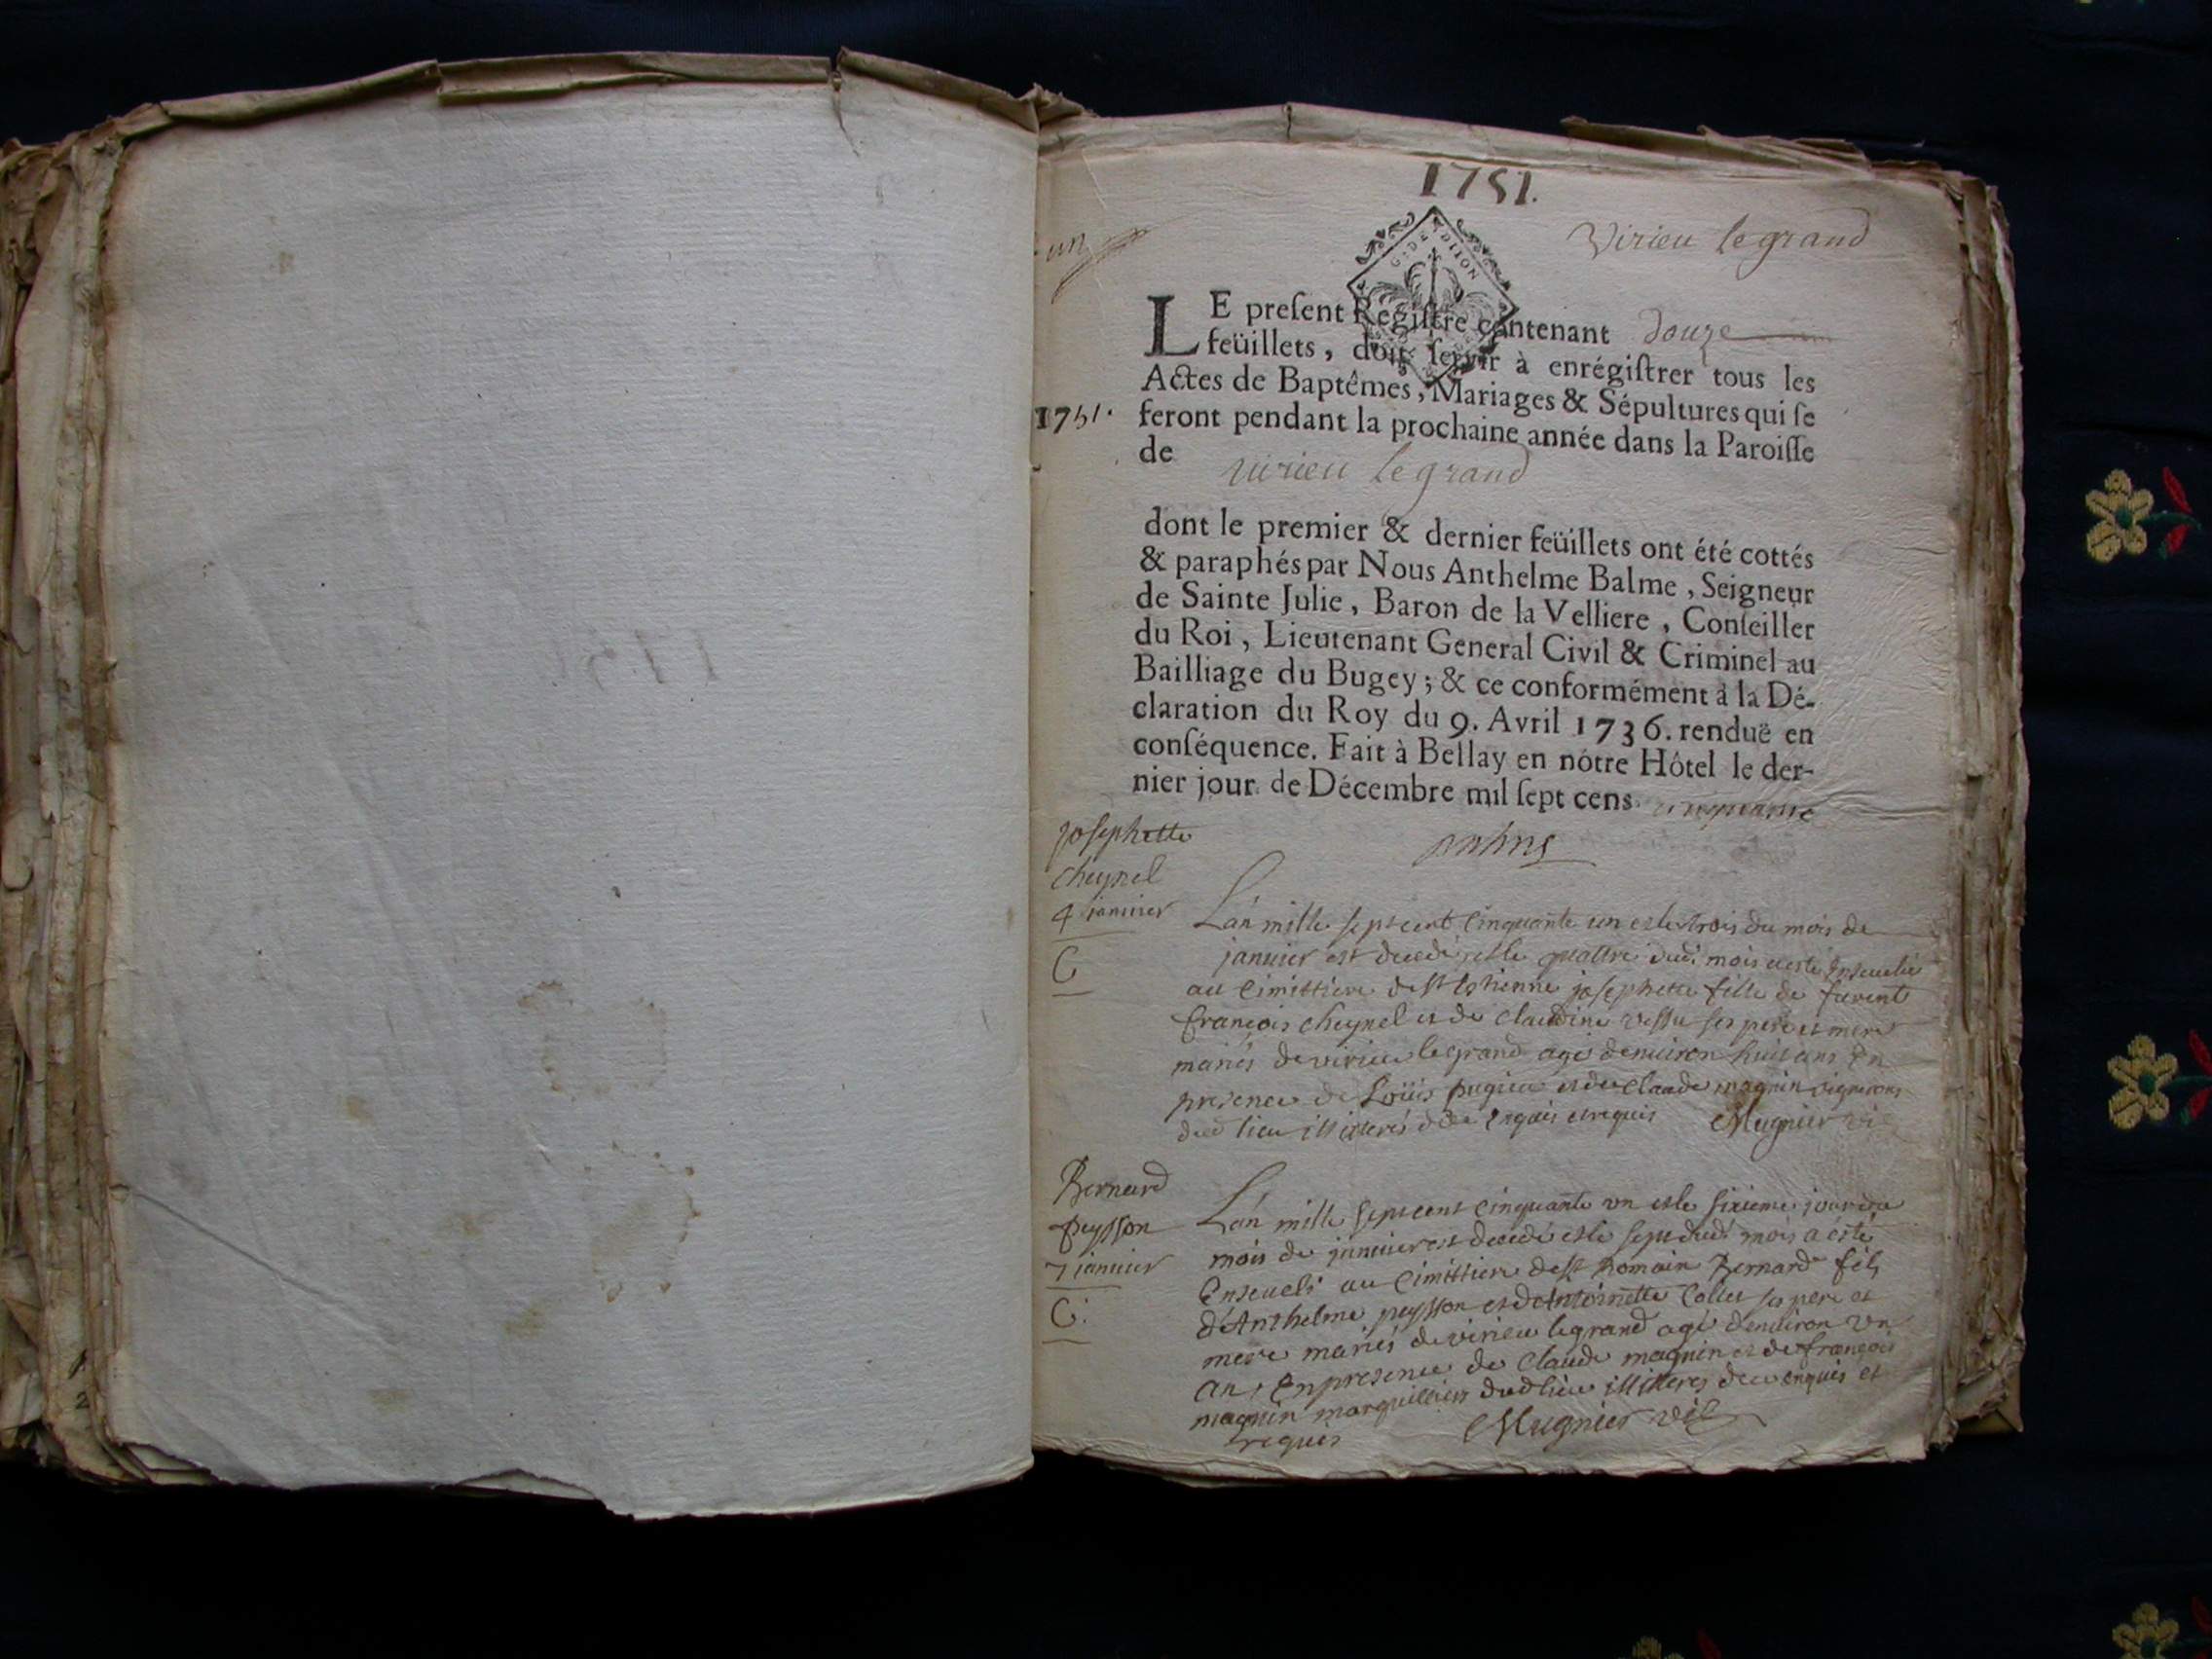 1751.
un
Virieu le grand
G. DE DIJON
LE preſent Regiſtre contenant douze
feüillets, doit ſervir à enrégiſtrer tous les
Actes de Baptêmes, Mariages & Sépultures qui ſe
1751. feront pendant la prochaine année dans la Paroiſſe
de virieu le grand
dont le premier & dernier feüillets ont été cottés
& paraphés par Nous Anthelme Balme, Seigneur
de Sainte Julie, Baron de la Velliere, Conſeiller
du Roi, Lieutenant General Civil & Criminel au
Bailliage du Bugey; & ce conformément à la Dé-
claration du Roy du 9. Avril 1736. renduë en
conſéquence. Fait à Bellay en nôtre Hôtel le der-
nier jour de Décembre mil ſept cens cinquante
Josephette
Cheynel
4 januier
C
L'an mille sept cent cinquante un et le trois du mois de
januier est decedé et le quattre dud. mois a esté enseuelie
au cimittiere de st Estienne josephette fille de
françois cheynel et de claudine ses pere et mere
mariés de virieu le grand agé denuiron huit ans En
presence de Loüis pugieu et de claude magnin vignerons
dud lieu illitterés de ce enquis et requis Mugnier vic
Bernard
peysson
7 januier
C.
L'an mille sept cent cinquante vn et le sixieme jour du
mois de januier est decedé et le sept dud. mois a esté
Enseueli au cimittiere de st Romain Bernard fils
d'Anthelme peysson et d'Antoinette Collet ses pere et
mere mariés de virieu le grand agé denuiron vn
an, En presence de Claude magnin et de françois
magnin marguilliers dud lieu illitteres de ce enquis et
requis Mugnier vic